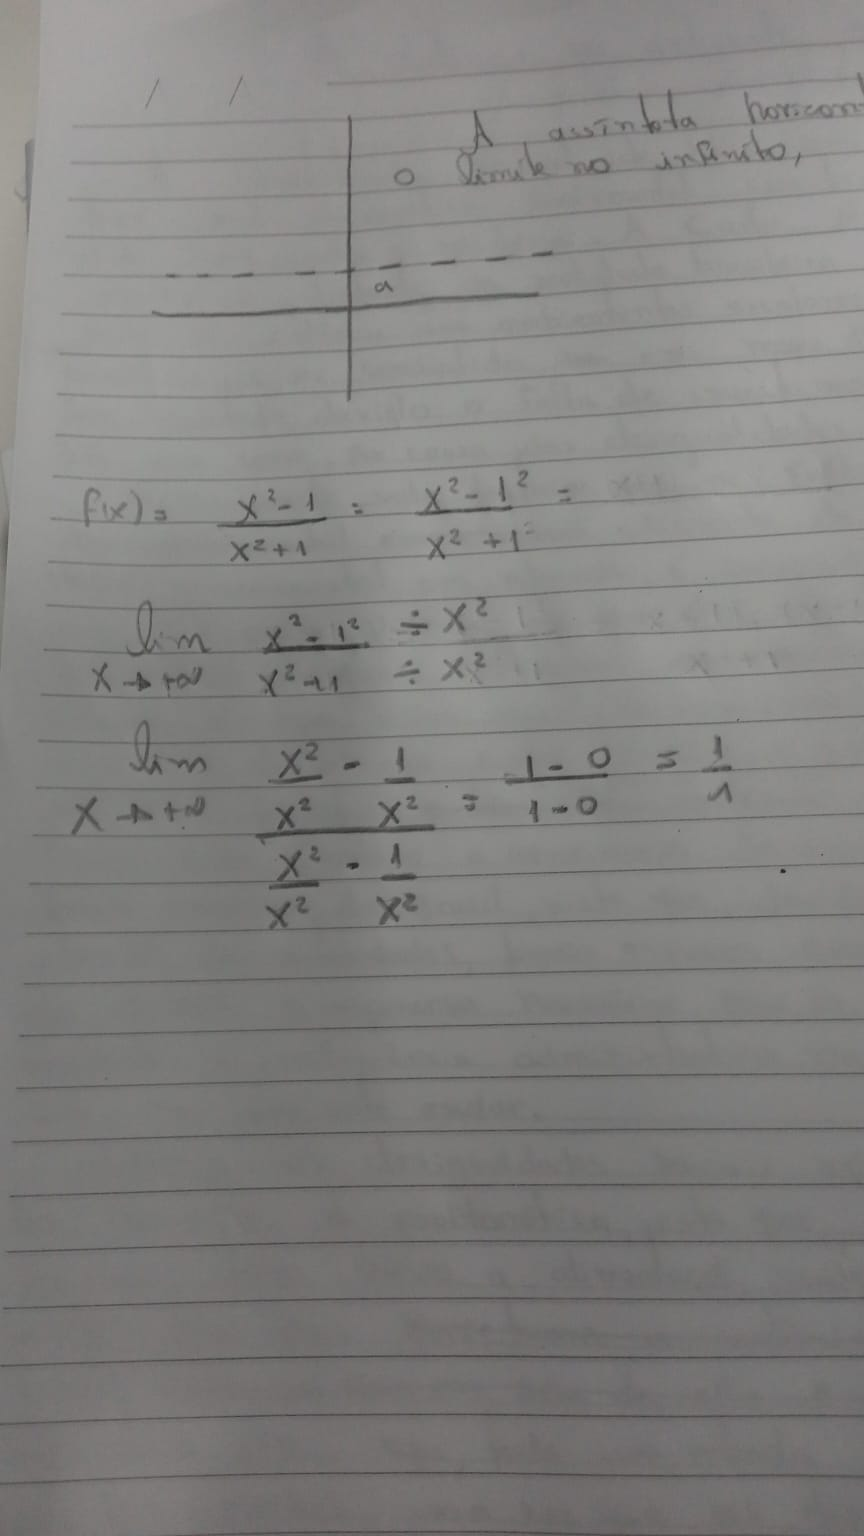 / /
A assíntota horizon
o limite no infinito,
a
f(x) = x² - 1 / x² + 1 = x² - 1² / x² + 1² =
lim x → +∞ x² - 1² / x² + 1 ÷ x² / ÷ x²
lim x → +∞ x²/x² - 1/x² / x²/x² - 1/x² = 1 - 0 / 1 - 0 = 1/1